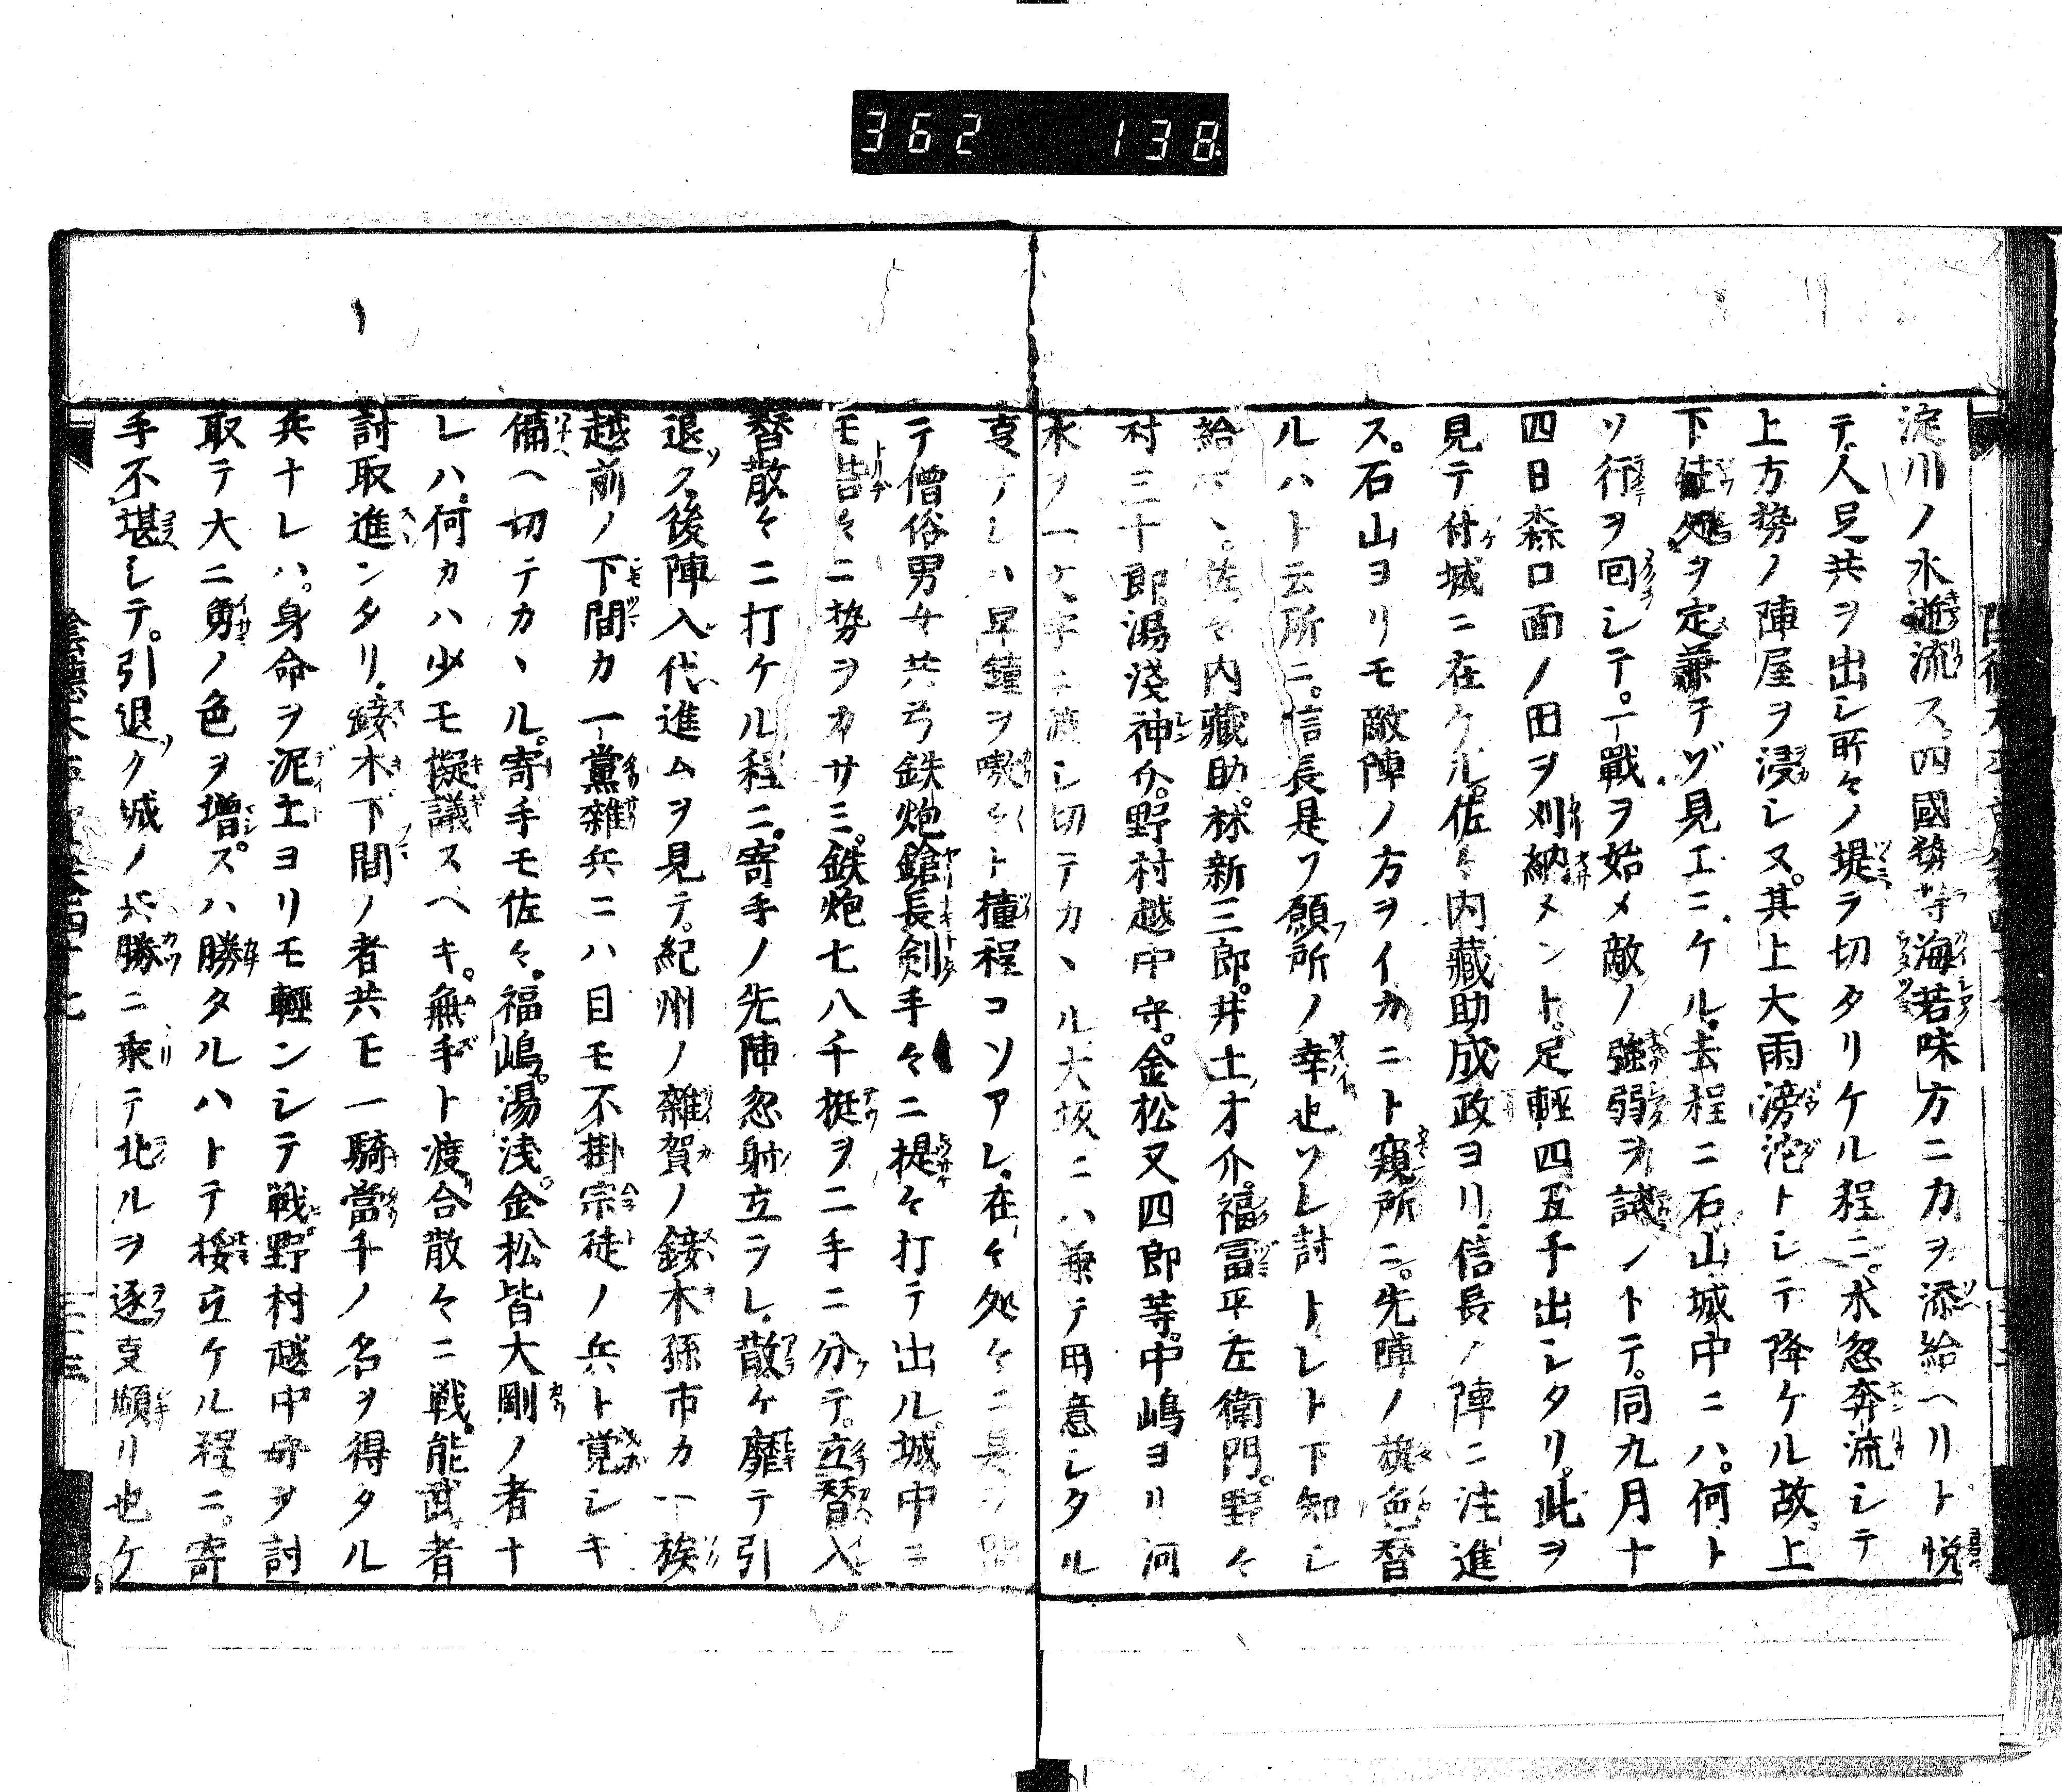 362 138
淀川ノ水逆流ス四國勢等海若味方ニ力ヲ添給ヘリト悦
テ人足共ヲ出シ所々ノ堤ヲ切タリケル程ニ水忽奔流シテ
上方勢ノ陣屋ヲ浸シヌ其上大雨滂沱トシテ降ケル故上
下処ヲ定兼テゾ見エニケル去程ニ石山城中ニハ何ト
ソ行ヲ回シテ一戰ヲ始メ敵ノ強弱ヲ試ントテ同九月十
四日森口面ノ田ヲ刈納メント足輕四五千出シタリ此ヲ
見テ付城ニ在ケル佐々内藏助成政ヨリ信長ノ陣ニ注進
ス石山ヨリモ敵陣ノ方ヲイカニト窺所ニ先陣ノ旗色替
ルハト云所ニ信長是ソ願所ノ幸也ソレ討トレト下知シ
給ヘハ佐々内藏助林新三郎井土才介福冨平左衛門野々
村三十郎湯淺神介野村越中守金松又四郎等中嶋ヨリ河
水ヲ一文字ニ渡シ切テカヽル大坂ニハ兼テ用意シタル
支ナレハ早鐘ヲ嗷々ト撞程コソアレ在々処々ニ是ヲ聞
テ僧俗男女共弓鉄炮鎗長剣手々ニ提々打テ出ル城中ニ
モ砦々ニ勢ヲカサミ鉄炮七八千挺ヲ二手ニ分テ立替入
替散々ニ打ケル程ニ寄手ノ先陣忽射立ラレ散ケ靡テ引
退ク後陣入代進ムヲ見テ紀州ノ雜賀ノ鈴木孫市カ一族
越前ノ下間カ一黨雜兵ニハ目モ不掛宗徒ノ兵ト覚シキ
備ヘ切テカヽル寄手モ佐々福嶋湯浅金松皆大剛ノ者ナ
レハ何カハ少モ擬議スヘキ無手ト渡合散々ニ戦能武者
討取進ンタリ鈴木下間ノ者共モ一騎當千ノ名ヲ得タル
兵ナレハ身命ヲ泥土ヨリモ輕ンシテ戦野村越中守ヲ討
取テ大ニ勇ノ色ヲ増スハ勝タルハトテ揉立ケル程ニ寄
手不堪シテ引退ク城ノ兵勝ニ乘テ北ルヲ逐支頻リ也ケ